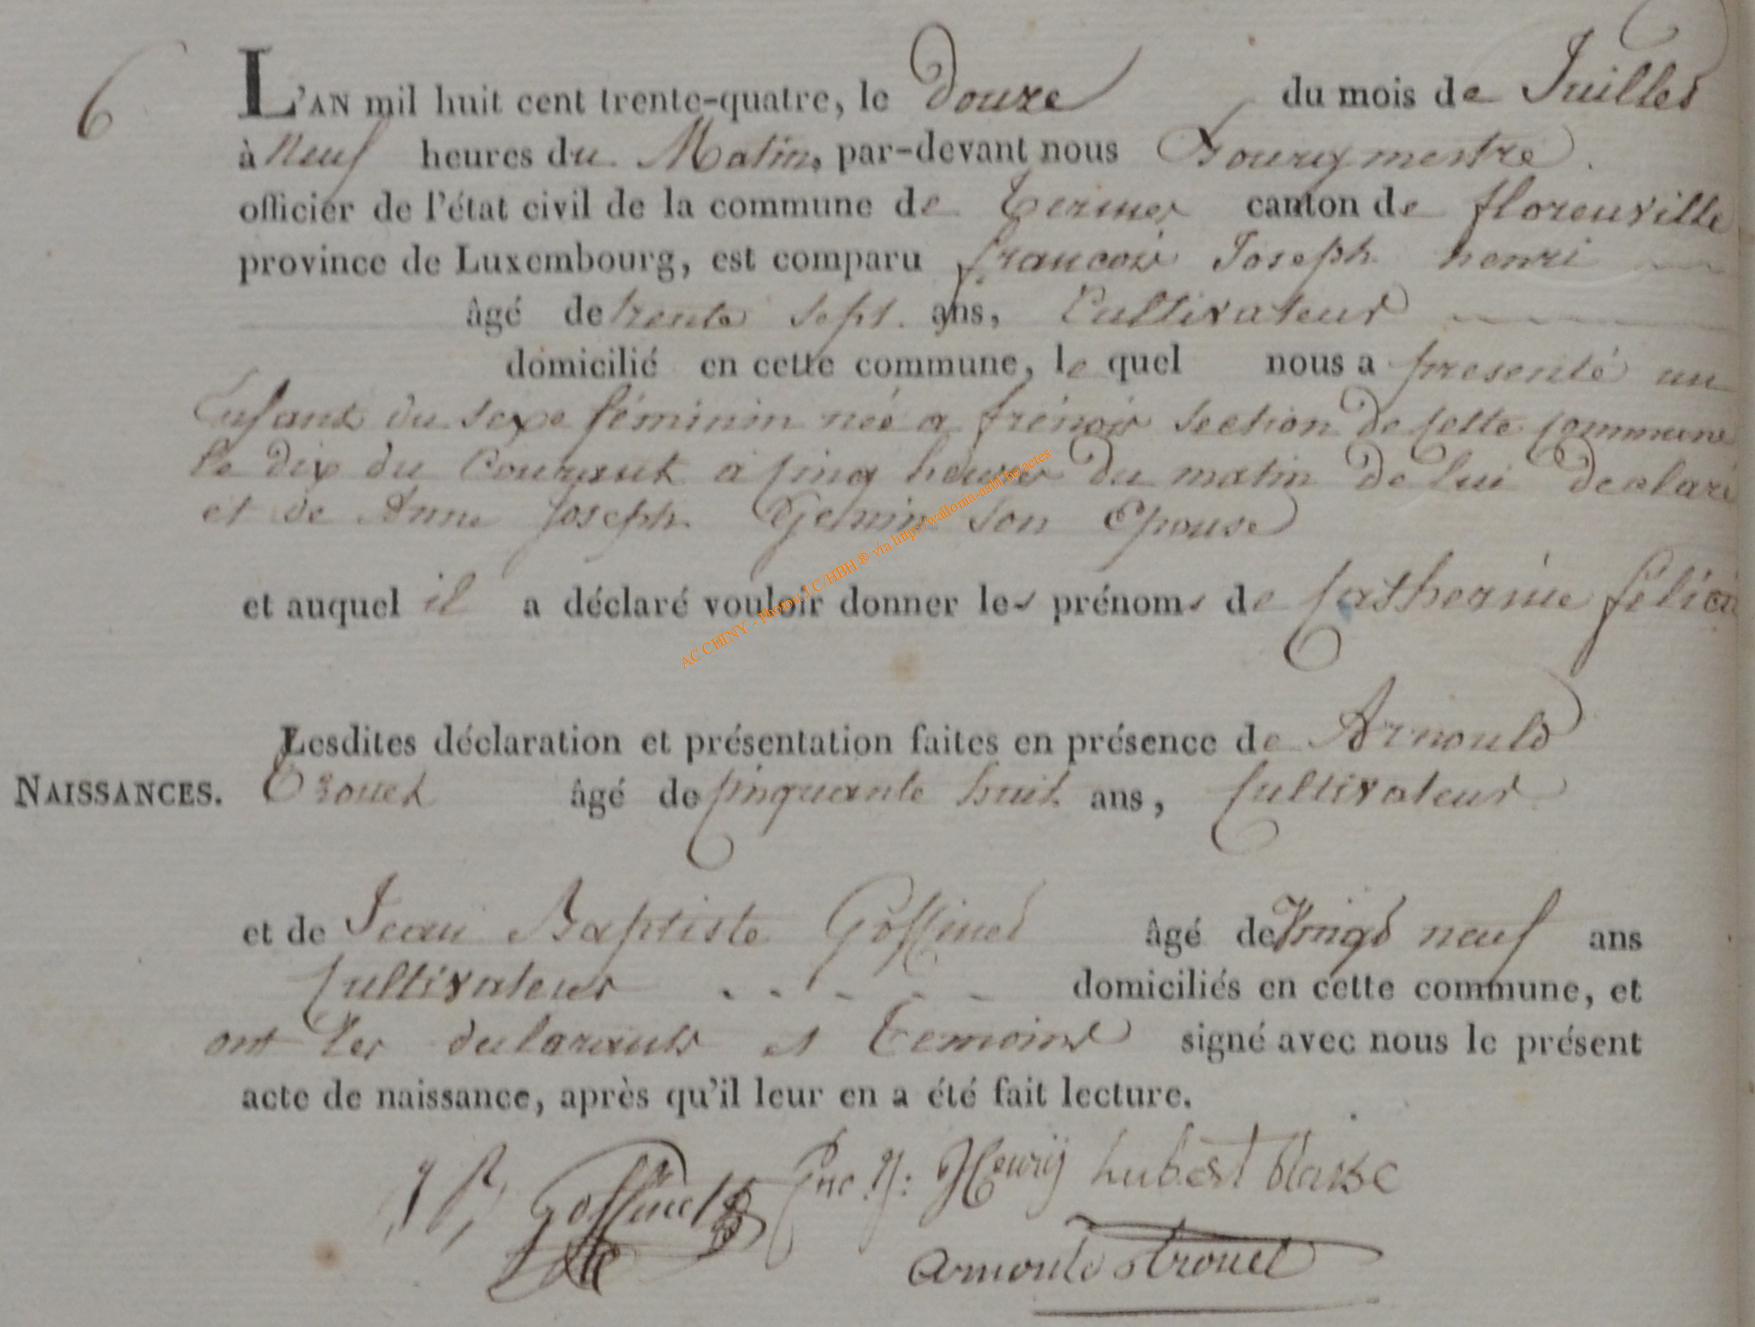 6
L'AN mil huit cent trente-quatre, le Douze du mois de Juillet
à Neuf heures du Matin, par-devant nous Bourgmestre
officier de l'état civil de la commune de Termes canton de florenville
province de Luxembourg, est comparu francois Joseph henri
âgé de trente sept ans, Cultivateur
domicilié en cette commune, le quel nous a presenté un
Enfant du sexe féminin née a frénois section de Cette Commune
le dix du Courant a Cinq heures du matin de lui declarant
et de Anne Joseph Genin son Epouse
et auquel il a déclaré vouloir donner les prénoms de Catherine félicité
Lesdites déclaration et présentation faites en présence de Arnould
NAISSANCES. Trouet âgé de Cinquante huit ans, Cultivateur
et de Jean Baptiste Goffinet âgé de Vingt neuf ans
Cultivateur - - - - - domiciliés en cette commune, et
ont les declarants et temoins signé avec nous le présent
acte de naissance, après qu'il leur en a été fait lecture.
J B Goffinet J: Henry hubert blaise
arnould trouet
AC CHINY - Photos J.C HBH ® via http://wallonia-asbl.be/actes